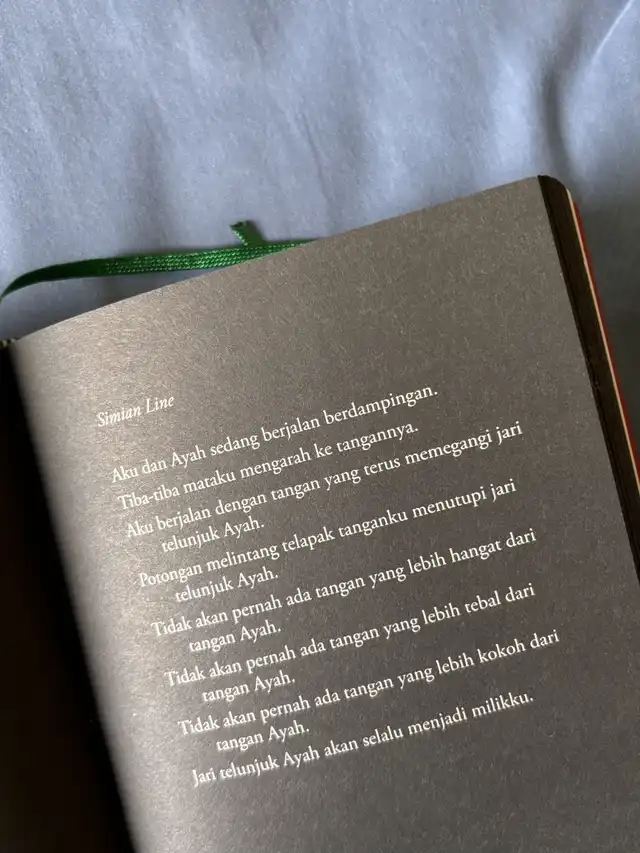 Simian Line
Aku dan Ayah sedang berjalan berdampingan.
Tiba-tiba mataku mengarah ke tangannya.
Aku berjalan dengan tangan yang terus memegangi jari
telunjuk Ayah.
Potongan melintang telapak tanganku menutupi jari
telunjuk Ayah.
Tidak akan pernah ada tangan yang lebih hangat dari
tangan Ayah.
Tidak akan pernah ada tangan yang lebih tebal dari
tangan Ayah.
Tidak akan pernah ada tangan yang lebih kokoh dari
tangan Ayah.
Jari telunjuk Ayah akan selalu menjadi milikku.